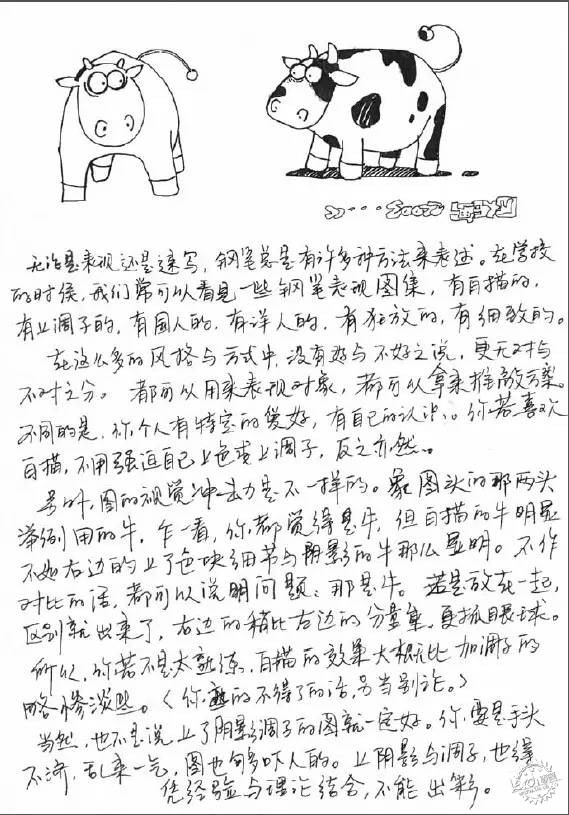 无论是表现还是速写，钢笔总是有许多种方法来表述。在学校
的时侯，我们常可以看见一些钢笔表现图集，有白描的，
有上调子的，有国人的，有洋人的，有狂放的，有细致的。
在这么多的风格与方式中，没有好与不好之说，更无对与
不对之分。都可以用来表现对象，都可以拿来推敲方案。
不同的是，你个人有特定的爱好，有自己的认识。你若喜欢
白描，不用强迫自己上色或上调子，反之亦然。
另外，图的视觉冲击力是不一样的。象图头的那两头
举例用的牛，乍一看，你都觉得是牛，但白描的牛明显
不如右边的上了色块细节与阴影的牛那么显明。不作
对比的话，都可以说明问题：那是牛。若是放在一起，
区别就出来了，右边的稍比右边的分量重，更抓眼球。
所以，你若不是太熟练，白描的效果大概比加调子的
略惨淡些。（你熟的不得了的话，另当别论。）
当然，也不是说上了阴影调子的图就一定好。你要是手头
不济，乱来一气，图也够吓人的。上阴影与调子，也得
凭经验与理论结合，不能出彩。